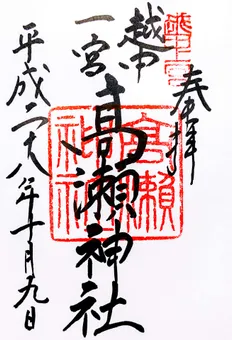 奉拝
越中
一宮
高瀬神社
平成二十八年十月九日
越中一宮
高瀬神社